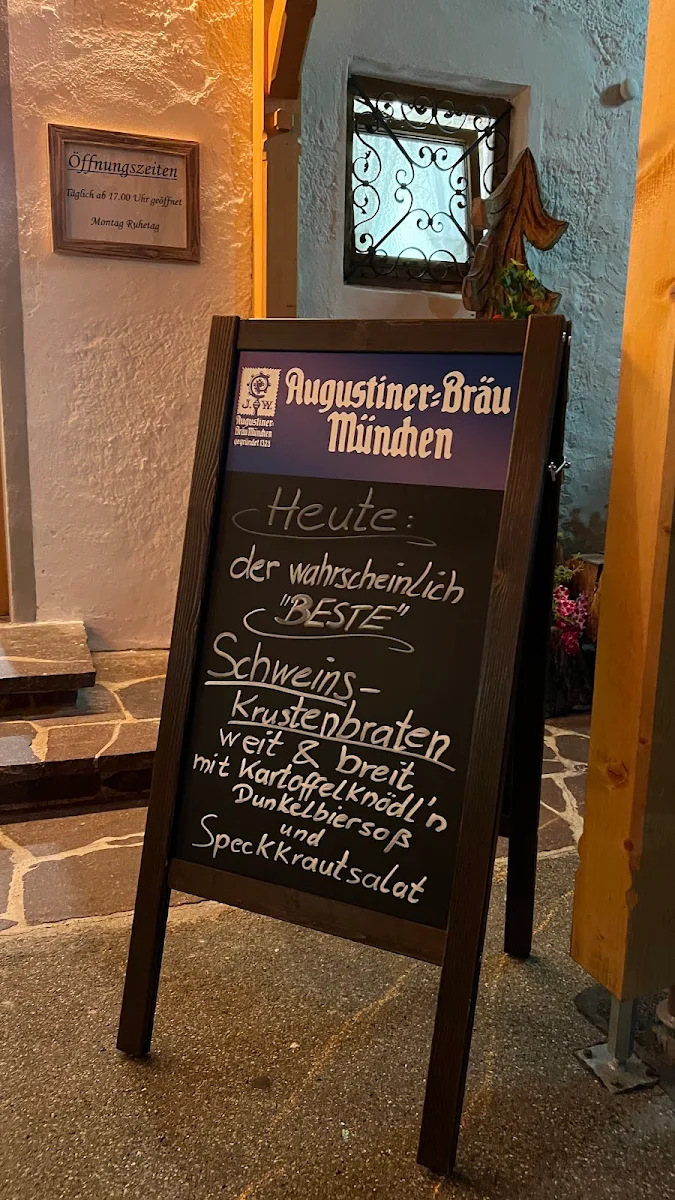 Öffnungszeiten
Täglich ab 17.00 Uhr geöffnet
Montag Ruhetag
J. & W.
Augustiner-
Bräu München
gegründet 1328
Augustiner-Bräu
München
Heute:
der wahrscheinlich
"BESTE"
Schweins-
Krustenbraten
weit & breit
mit Kartoffelknödl'n
Dunkelbiersoß
und
Speckkrautsalat